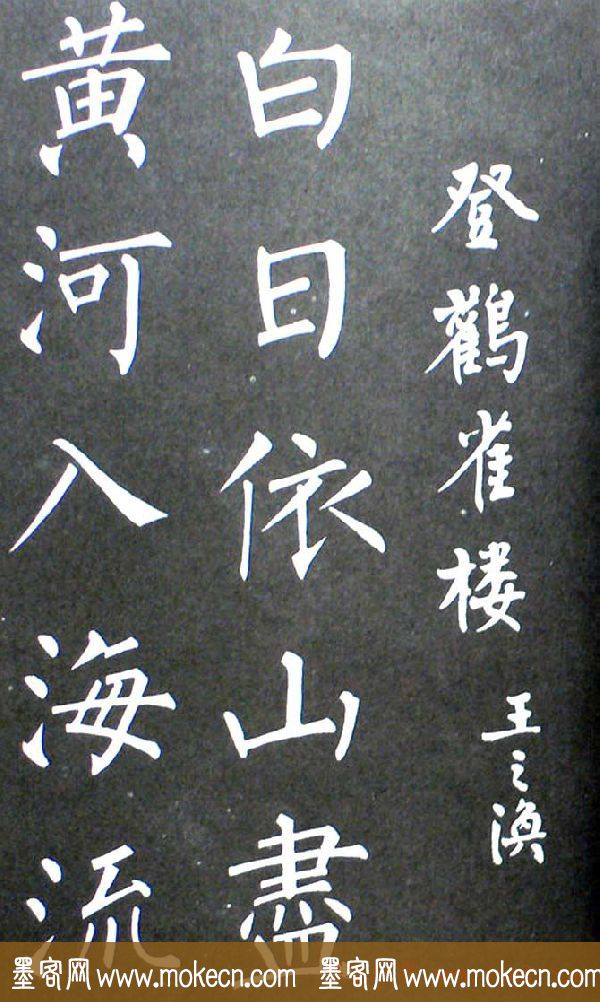 登鸛雀楼 王之渙
白日依山盡
黄河入海流
墨客网 www.mokecn.com 墨客网 www.mokecn.com